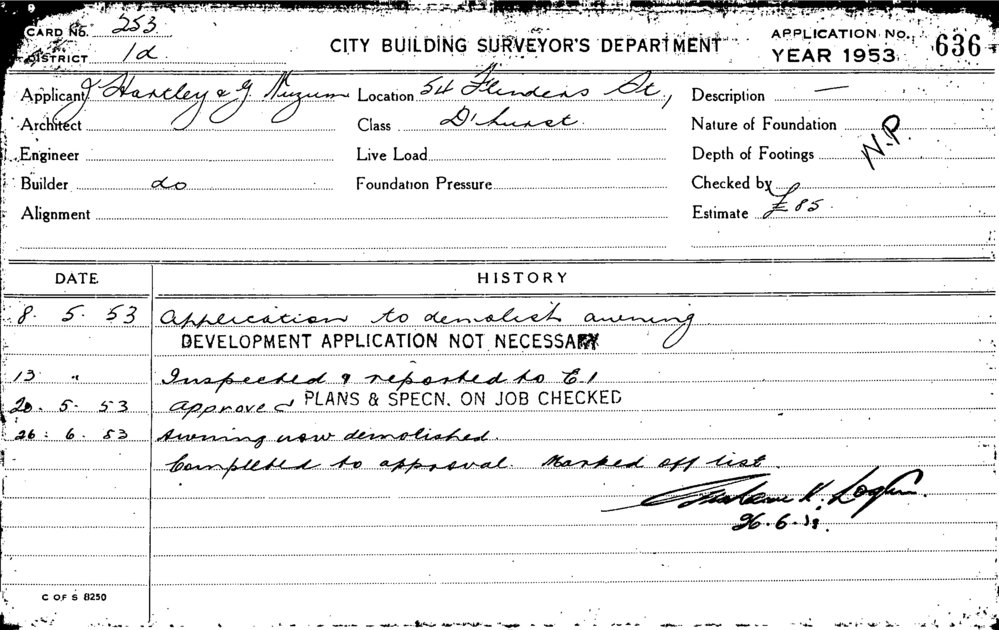 CARD No. 253
DISTRICT 1d
CITY BUILDING SURVEYOR'S DEPARTMENT
APPLICATION NO. 636
YEAR 1953
Applicant J Hartley & G Nuzum Location 54 Flinders St., Description —
Architect Class D'hurst. Nature of Foundation
Engineer Live Load Depth of Footings N.P
Builder do Foundation Pressure Checked by
Alignment Estimate £85
DATE HISTORY
8. 5. 53 Application to demolish awning
DEVELOPMENT APPLICATION NOT NECESSARY
13 " Inspected & reported to E.I
20. 5. 53 approved PLANS & SPECN. ON JOB CHECKED
26. 6. 53 Awning now demolished.
Completed to approval. Marked off list.
K. Logan.
26.6.53.
C OF S 8250